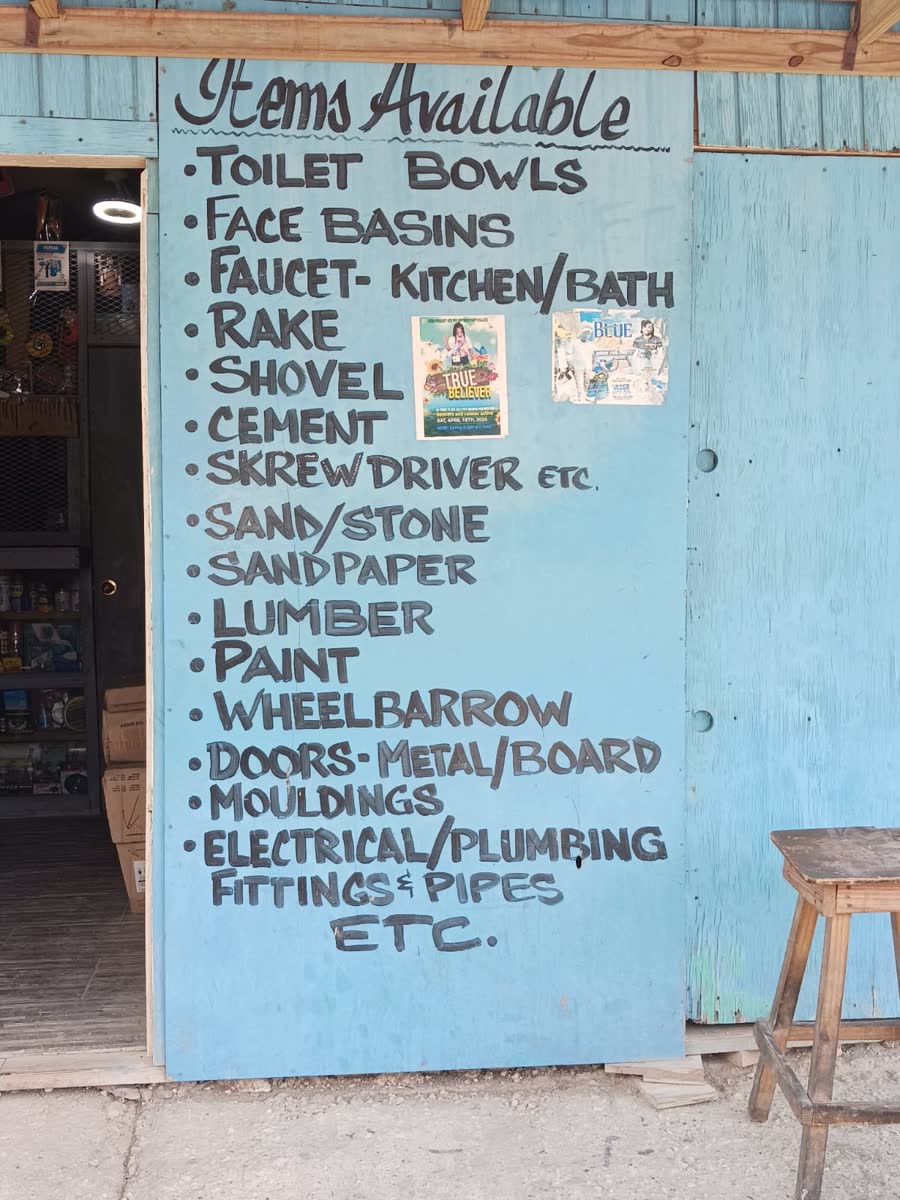 Items Available
• TOILET BOWLS
• FACE BASINS
• FAUCET- KITCHEN/BATH
• RAKE
• SHOVEL
• CEMENT
• SKREWDRIVER ETC.
• SAND/STONE
• SANDPAPER
• LUMBER
• PAINT
• WHEELBARROW
• DOORS- METAL/BOARD
• MOULDINGS
• ELECTRICAL/PLUMBING
FITTINGS & PIPES
ETC.
TRUE
BELIEVER
BLUE